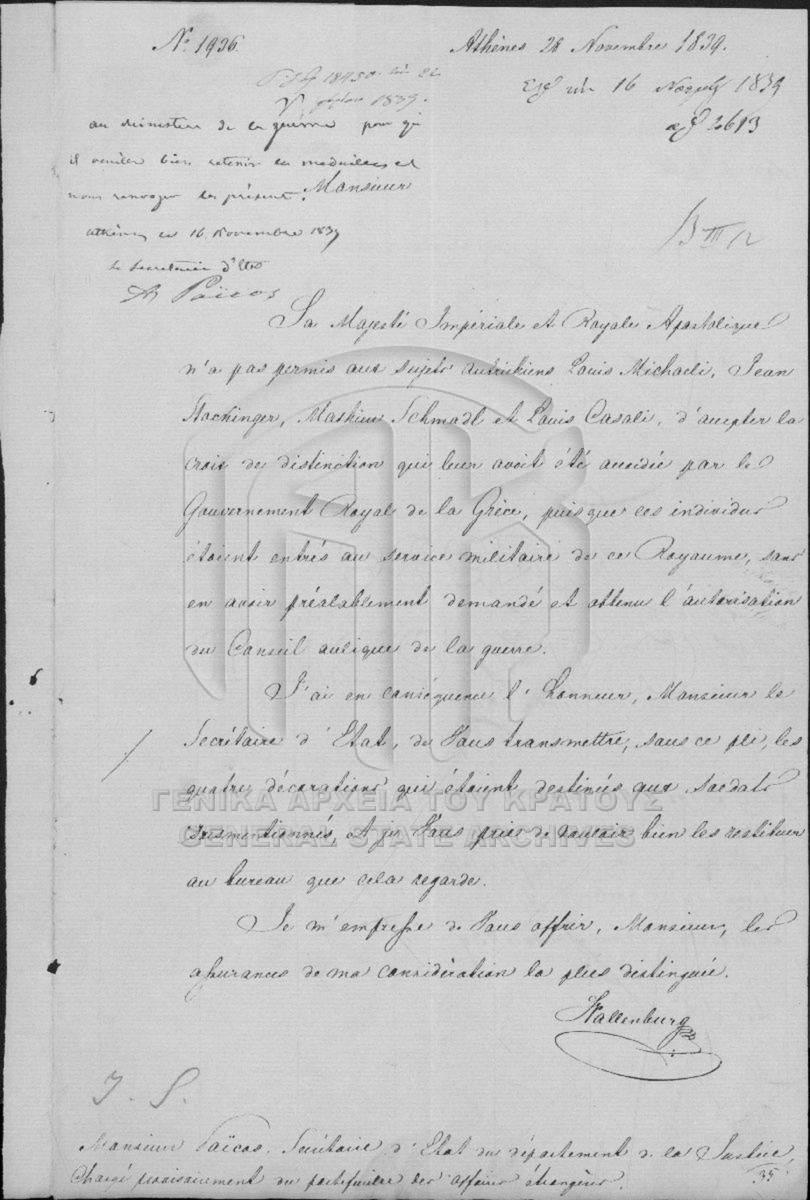 No 1936.
Athènes 28 Novembre 1839.
16 1839
2613
1839.
au ministère de la guerre pour qu'
il veuille bien retenir les medailles et
nous renvoyer le présent.
athènes ce 16 Novembre 1839
le secretaire d'Etat
A Païcos
Monsieur
B III 12
Sa Majesté Impériale et Royale Apostolique
n'a pas permis aux sujets autrichiens Louis Michaeli, Jean
Stockinger, Mathieu Schmadl et Louis Casali, d'accepter la
croix de distinction qui leur avoit été accordée par le
Gouvernement Royal de la Grèce, puisque ces individus
étoient entrés au service militaire de ce Royaume, sans
en avoir préalablement demandé et obtenu l'autorisation
du Conseil aulique de la guerre.
J'ai en conséquence l'honneur, Monsieur le
Secrétaire d'Etat, de Vous transmettre, sous ce pli, les
quatre décorations qui étoient destinées aux soldats
susmentionnés, et je Vous prie de vouloir bien les restituer
au bureau que cela regarde.
Je m'empresse de Vous offrir, Monsieur, les
assurances de ma considération la plus distinguée.
Wallenburg
J. S.
Monsieur Païcos, Secrétaire d'Etat du département de la Justice,
Chargé provisoirement du portefeuille des affaires étrangères.
35
ΓΕΝΙΚΑ ΑΡΧΕΙΑ ΤΟΥ ΚΡΑΤΟΥΣ
GENERAL STATE ARCHIVES